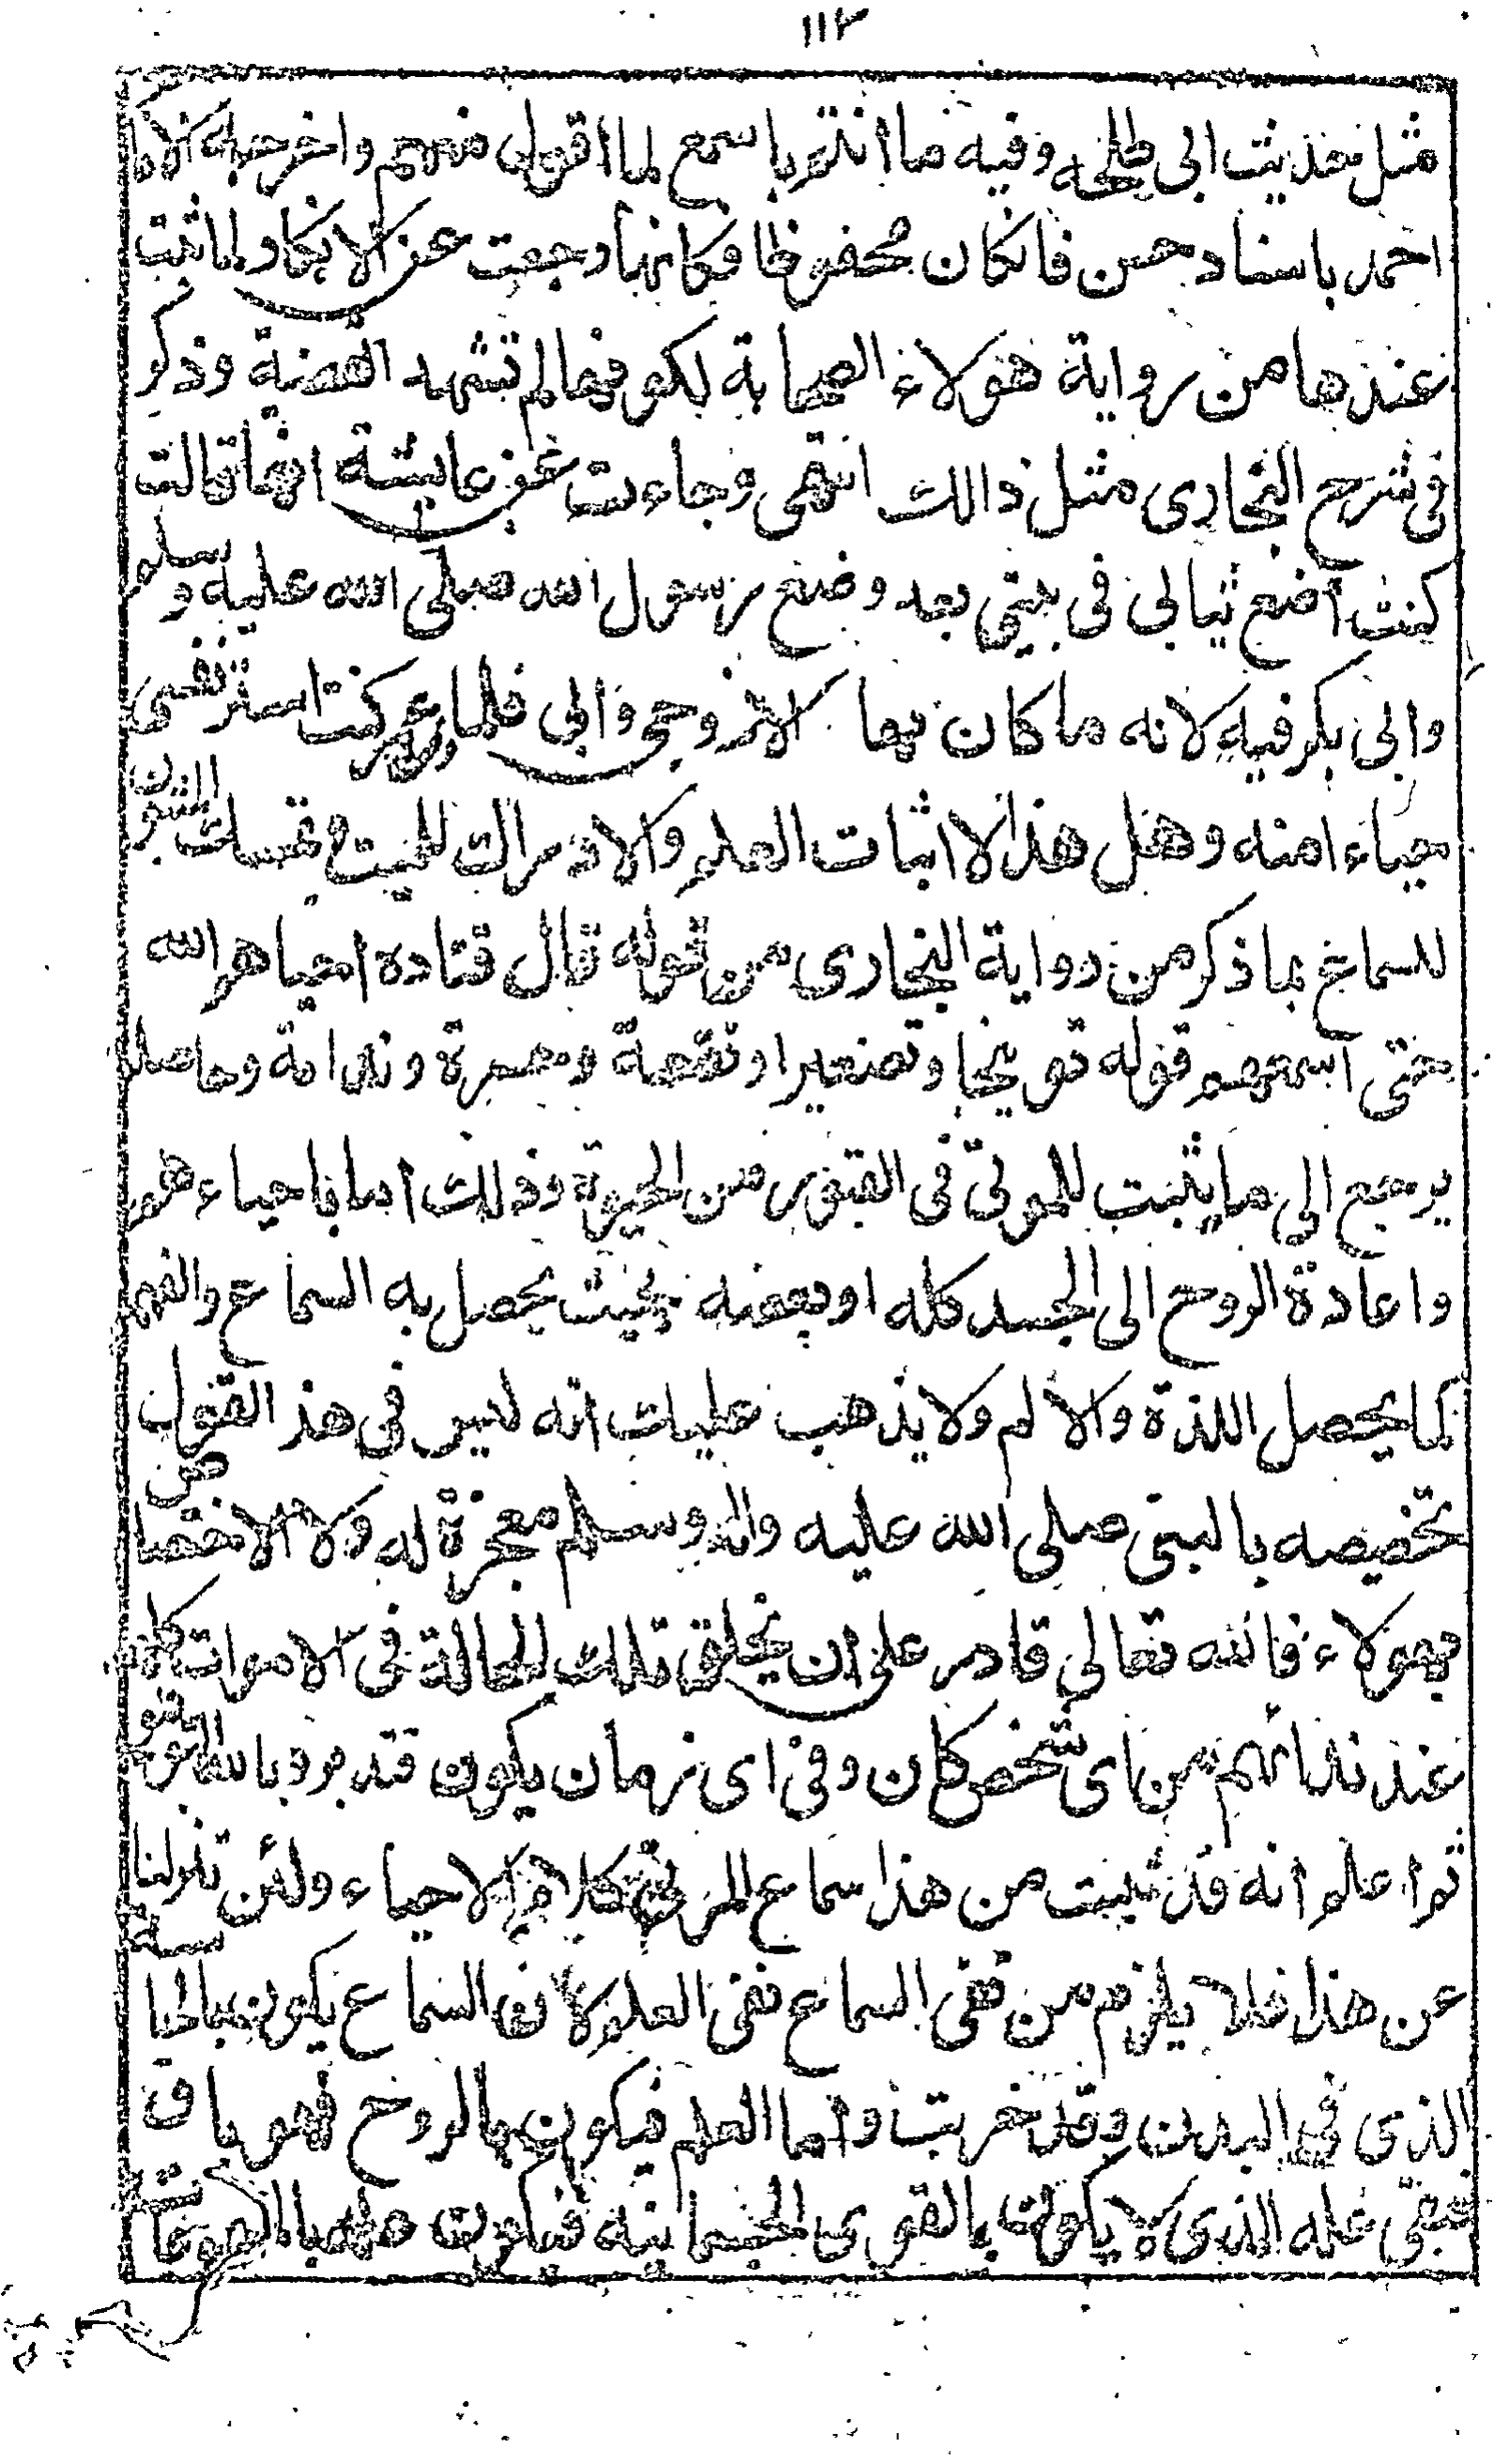 ١١٢
مثل حديث ابى طلحه وفيه ما انتم باسمع لما اقول منهم واخرجه الاما
احمد باسناد حسن فانكان محفوظا فكانها رجعت عن الانكار لما ثبت
عندها من رواية هولاء الصحابة لكونها لم تشهد القصة وذكر
فى شرح البخارى مثل ذالك انتهى وجاءت عن عايشة انها قالت
كنت اضع ثيابى فى بيتى بعد وضع رسول الله صلى الله عليه و سلم
وابى بكر فيه لانه ما كان بها الا زوجى وابى فلما وضع عمر كنت استر نفسى
حياء منه وهل هذا الا اثبات العلم والادراك للميت وتمسك المثبتون
للسماع بما ذكر من رواية البخارى من قوله قال قتاده احياهم الله
حتى اسمعهم قوله توبيخا وتصغيرا ونقمة وحسرة وندامة وحاصله
يرجع الى ما يثبت للموتى فى القبور من الحيوة وذلك اما باحياءهم
واعادة الروح الى الجسد كله او بعضه بحيث يحصل به السماع والفهم
كما يحصل اللذة والالم ولا يذهب عليك انه ليس فى هذ القول
تخصيصه بالبنى صلى الله عليه واله وسلم معجزة له ولا الاختصا ص
بهولاء فالله تعالى قادر على ان يخلق تلك الحالة فى الاموات كلهم
عند ندائهم من اى شخص كان وفى اى زمان يكون قد بر وبالله التوفيق
ثم اعلم انه قد ثبت من هذا سماع الموتى كلام الاحياء ولئن تنزلنا
عن هذا فلا يلزم من نفى السماع نفى العلم لان السماع يكون بالحا سة
الذى فى البدن وقد خربت واما العلم فيكون بالروح فهو باق
فبقى علمه الذى لا يكون بالقوى الجسمانية فيكون علمه بالمسموعات